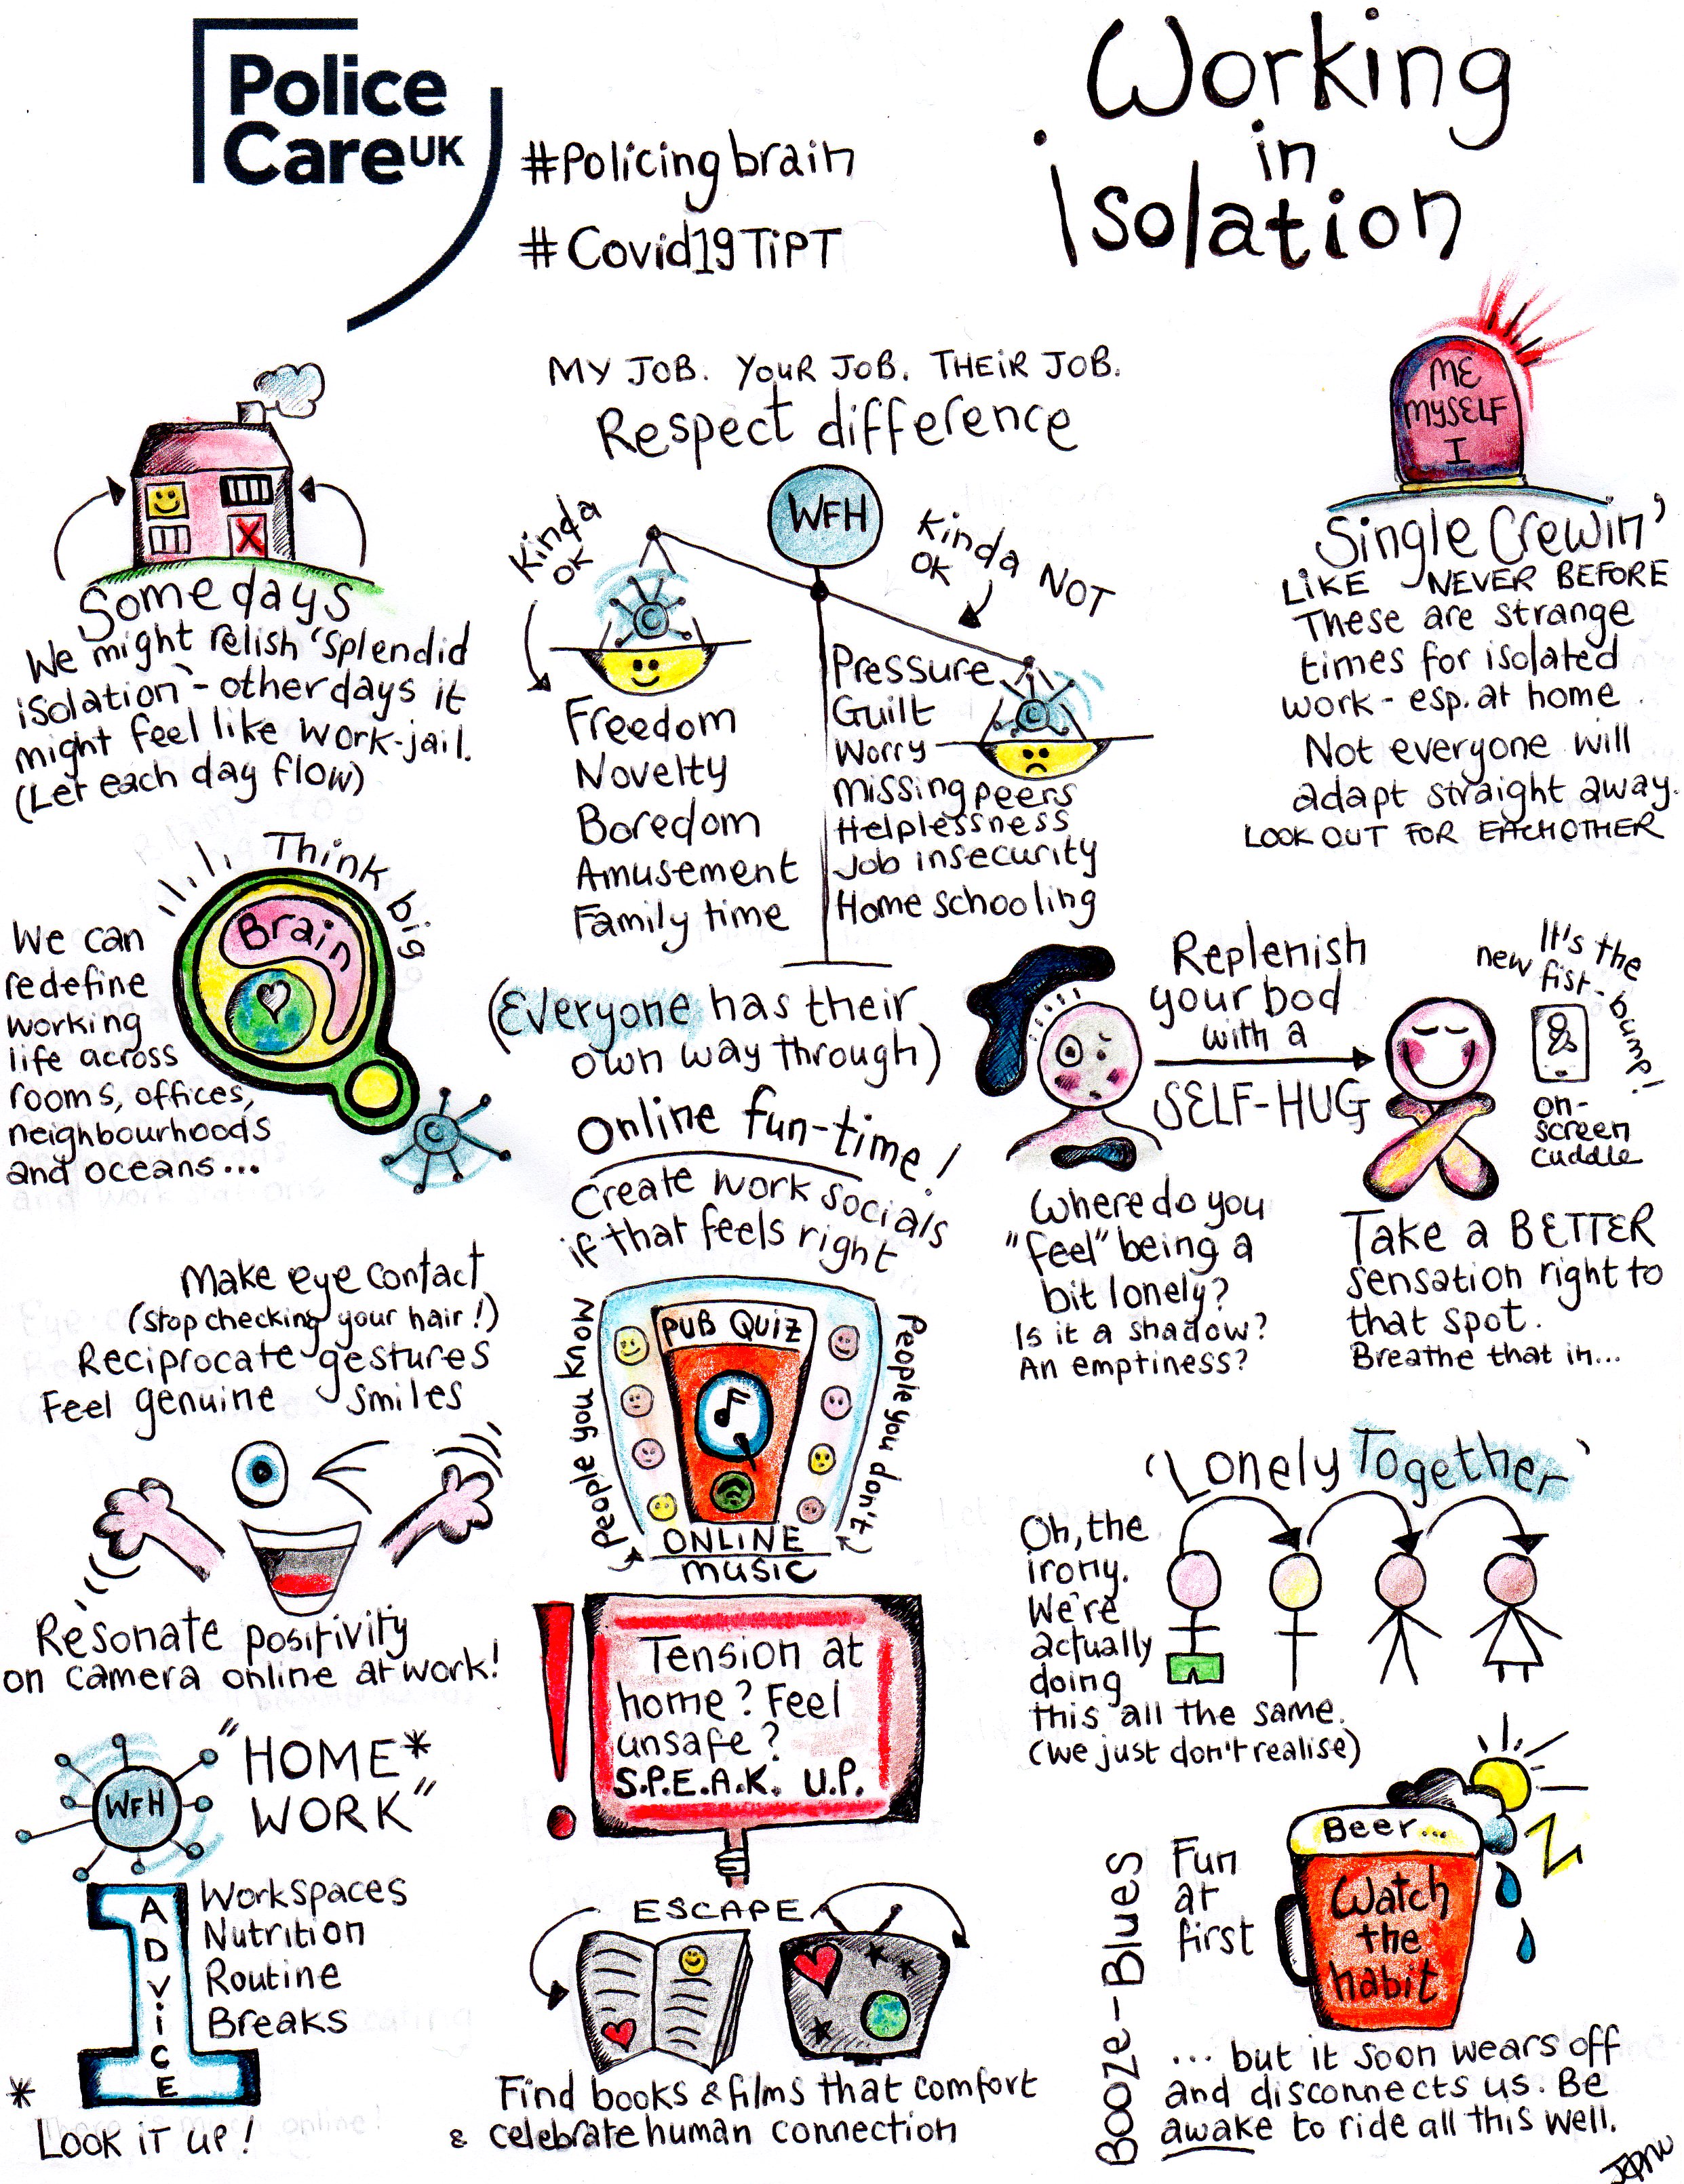 Police
Care UK
#Policingbrain
#Covid19TiPT
Working
in
Isolation
MY JOB. YOUR JOB. THEIR JOB.
Respect difference
Some days
We might relish 'splendid
isolation' - other days it
might feel like work-jail.
(Let each day flow)
WFH
Kinda
OK
Kinda NOT
OK
Freedom
Novelty
Boredom
Amusement
Family time
Pressure
Guilt
Worry
Missing peers
Helplessness
Job insecurity
Home schooling
(Everyone has their
own way through)
ME
MYSELF
I
Single Crewin'
LIKE NEVER BEFORE
These are strange
times for isolated
work - esp. at home.
Not everyone will
adapt straight away.
LOOK OUT FOR EACHOTHER
Think big
Brain
We can
redefine
working
life across
rooms, offices,
neighbourhoods
and oceans...
C
Online fun-time!
Create work socials
if that feels right
People you know
PUB QUIZ
People you don't
ONLINE
music
Replenish
your bod
with a
SELF-HUG
It's the
new fist-bump!
on-
screen
cuddle
Where do you
"feel" being a
bit lonely?
Is it a shadow?
An emptiness?
Take a BETTER
sensation right to
that spot.
Breathe that in...
Make eye contact
(stop checking your hair!)
Reciprocate gestures
Feel genuine smiles
Resonate positivity
on camera online at work!
Tension at
home? Feel
unsafe?
S.P.E.A.K. U.P.
'Lonely Together'
Oh, the
irony.
We're
actually
doing
this all the same.
(we just don't realise)
WFH
"HOME*
WORK"
ADViCE
Workspaces
Nutrition
Routine
Breaks
*
LOOK iT UP!
ESCAPE
Find books & films that comfort
& celebrate human connection
Booze-Blues
Fun
at
first
Beer...
Watch
the
habit
... but it soon wears off
and disconnects us. Be
awake to ride all this well.